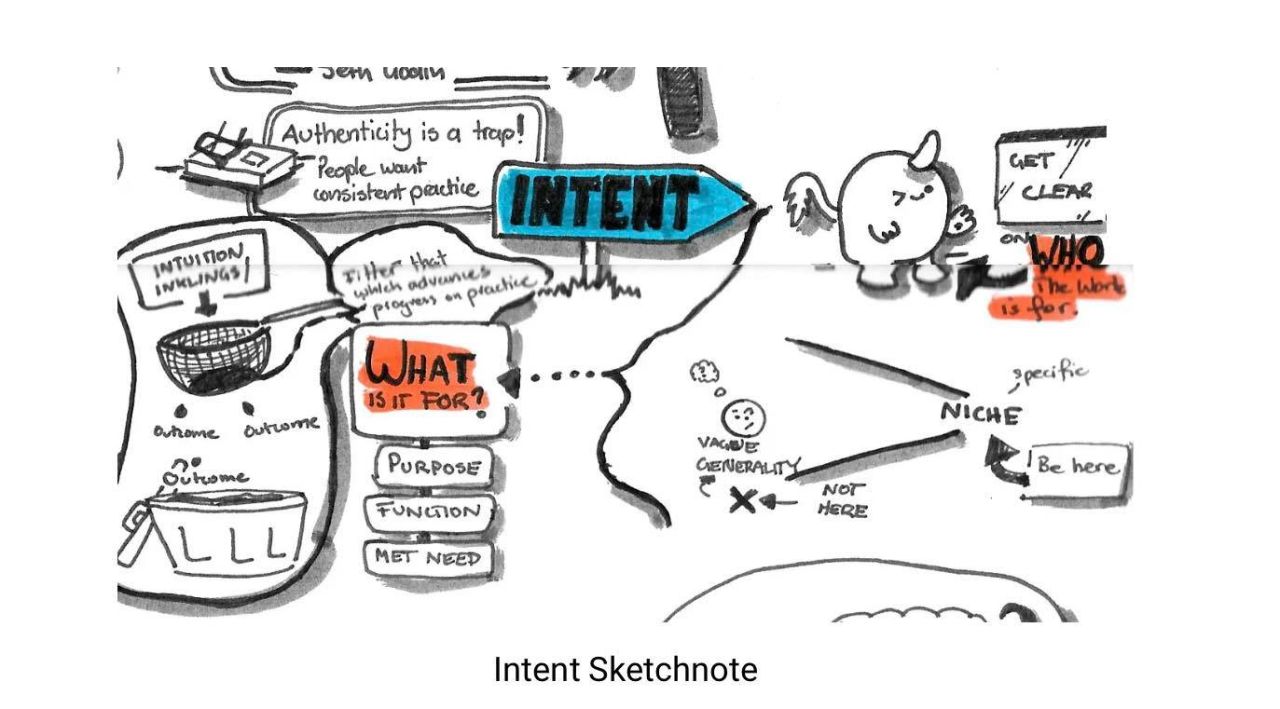 Seth Godin
Authenticity is a trap!
People want
consistent practice
INTENT
GET
CLEAR
ON
WHO
The Work
is for.
INTUITION
INKLINGS
Filter that
which advances
progress on practice
WHAT
IS IT FOR?
PURPOSE
FUNCTION
MET NEED
Outcome
Outcome
Outcome
specific
NICHE
Be here
VAGUE
GENERALITY
NOT
HERE
Intent Sketchnote